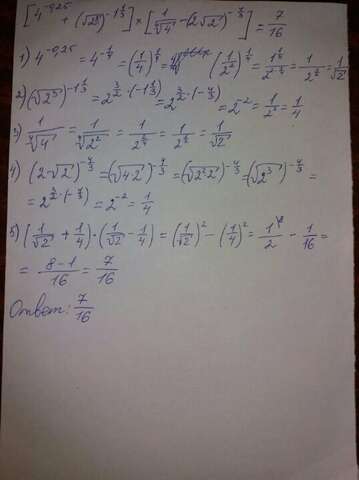 [4^{-0,25} + (√2³)^{-1 1/3}] × [1/⁴√4 - (2√2)^{-4/3}] = 7/16
1) 4^{-0,25} = 4^{-1/4} = (1/4)^{1/4} = (1/2²)^{1/4} = 1^{1/4}/2^{2·1/4} = 1/2^{1/2} = 1/√2
2) (√2³)^{-1 1/3} = 2^{3/2·(-1 1/3)} = 2^{3/2·(-4/3)} = 2^{-2} = 1/2² = 1/4
3) 1/⁴√4 = 1/⁴√2² = 1/2^{2/4} = 1/2^{1/2} = 1/√2
4) (2·√2)^{-4/3} = (√4·2)^{-4/3} = (√2²·2)^{-4/3} = (√2³)^{-4/3} =
= 2^{3/2·(-4/3)} = 2^{-2} = 1/4
5) (1/√2 + 1/4)·(1/√2 - 1/4) = (1/√2)² - (1/4)² = 1/2 - 1/16 =
= 8-1/16 = 7/16
Ответ: 7/16